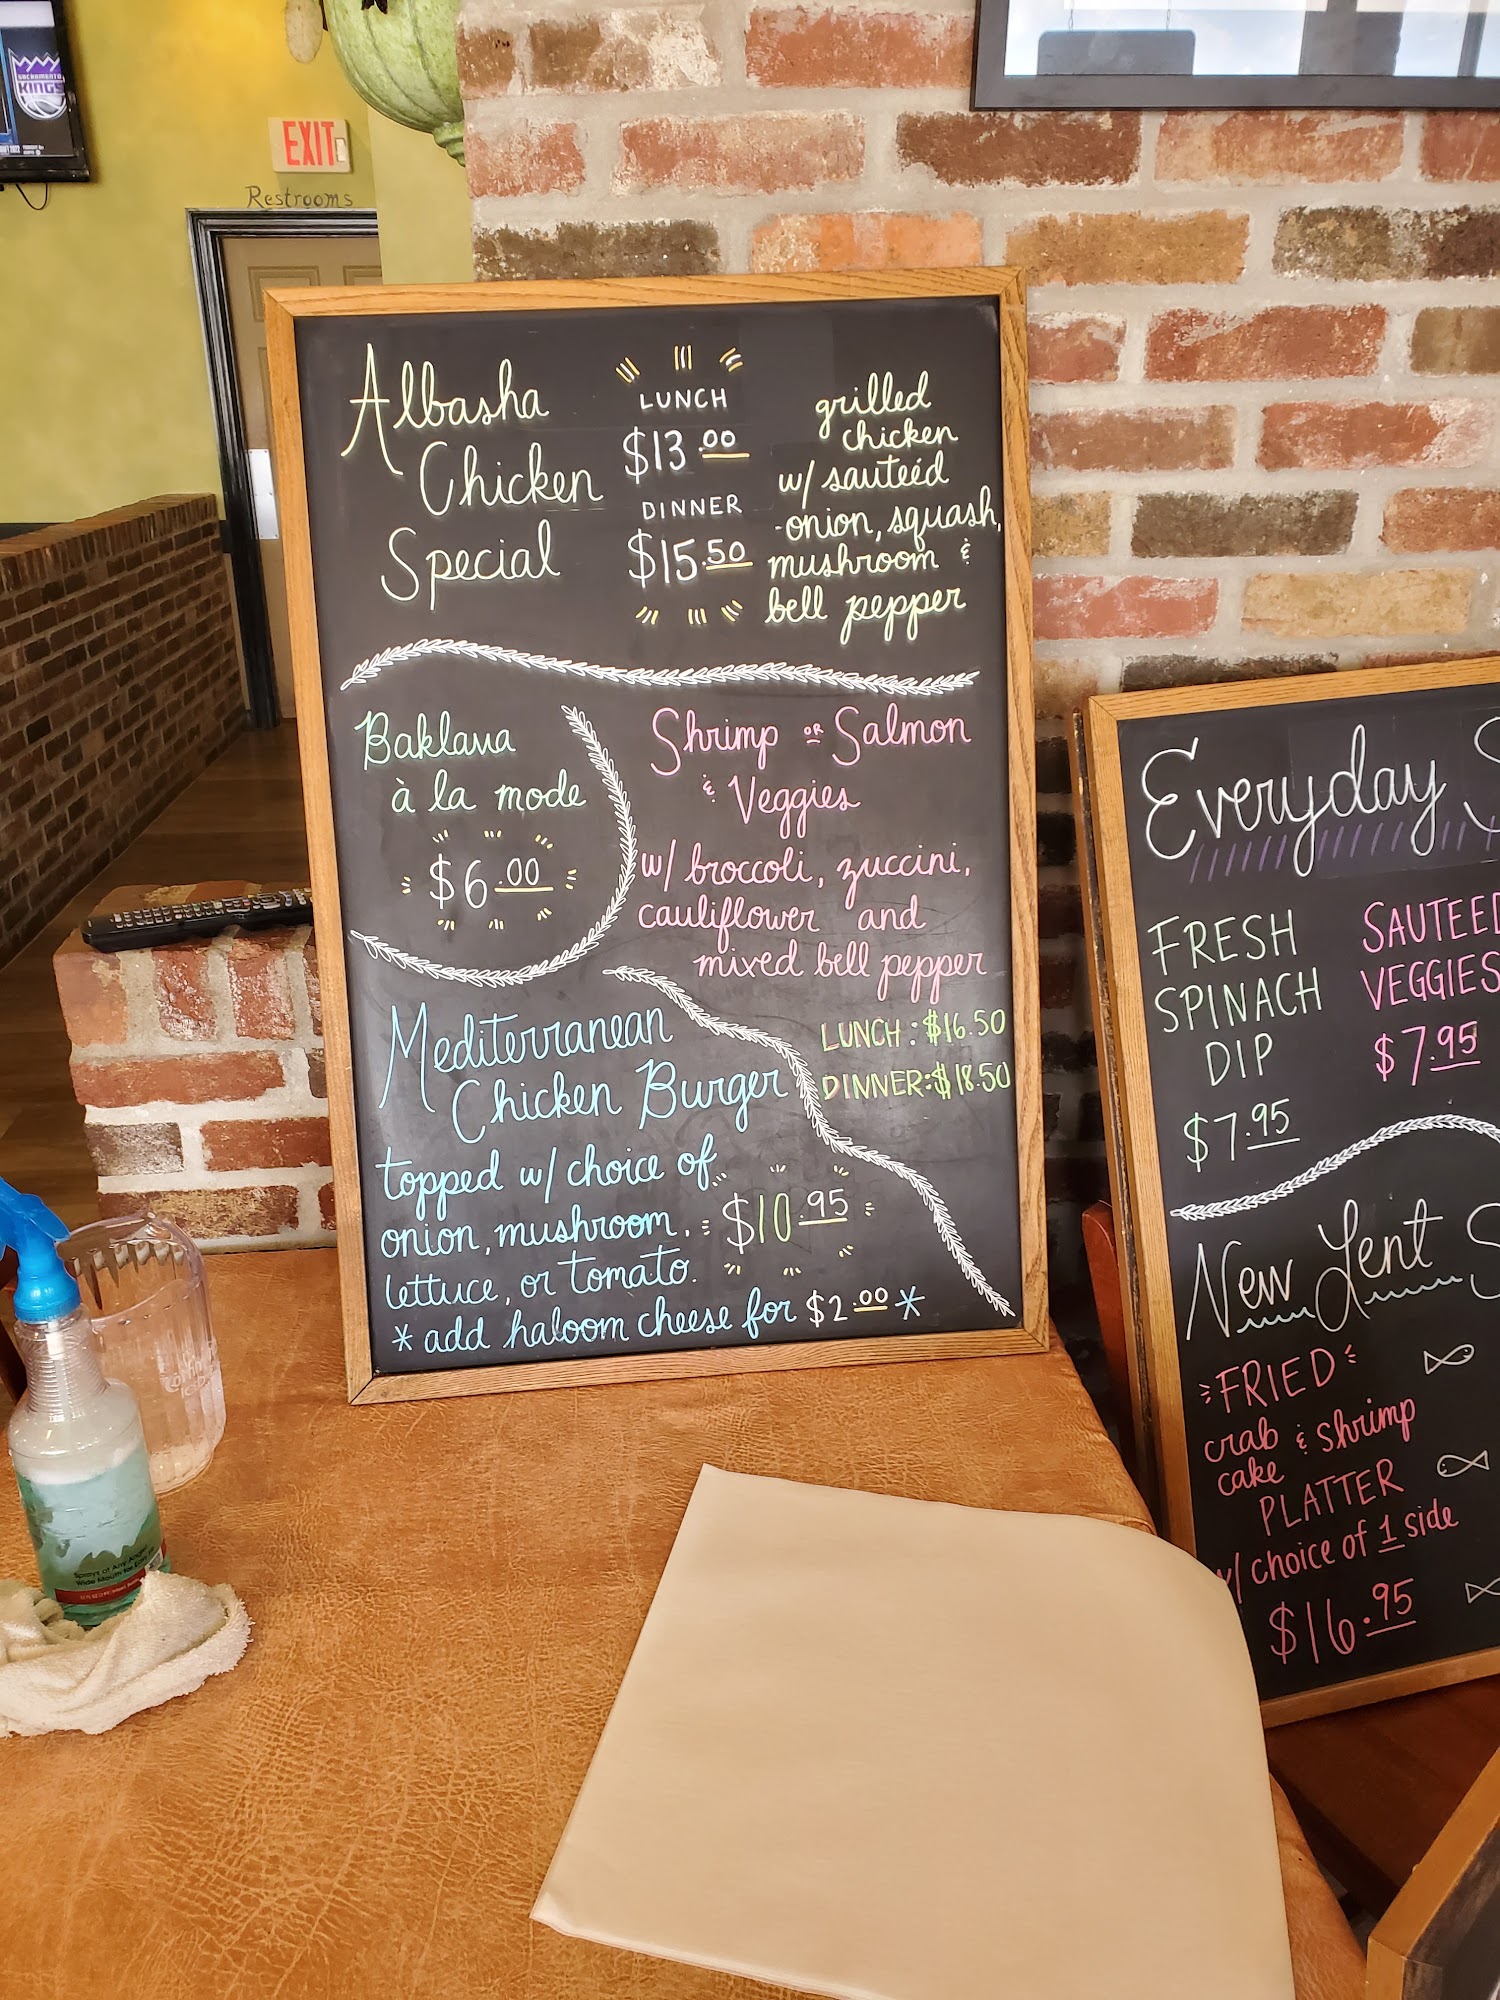 SACRAMENTO
KINGS
EXIT
Restrooms
Albasha
Chicken
Special
LUNCH
$13.00
DINNER
$15.50
grilled
chicken
w/ sauteéd
-onion, squash,
mushroom &
bell pepper
Baklava
à la mode
$6.00
Shrimp OR Salmon
& Veggies
w/ broccoli, zuccini,
cauliflower and
mixed bell pepper
LUNCH: $16.50
DINNER: $18.50
Mediterranean
Chicken Burger
topped w/ choice of
onion, mushroom,
lettuce, or tomato.
$10.95
* add haloom cheese for $2.00 *
Everyday S
FRESH
SPINACH
DIP
$7.95
SAUTEED
VEGGIES
$7.95
New Lent S
FRIED
crab & shrimp
cake
PLATTER
w/ choice of 1 side
$16.95
Sprays at Any Angle
Wide Mouth for Easy Fill